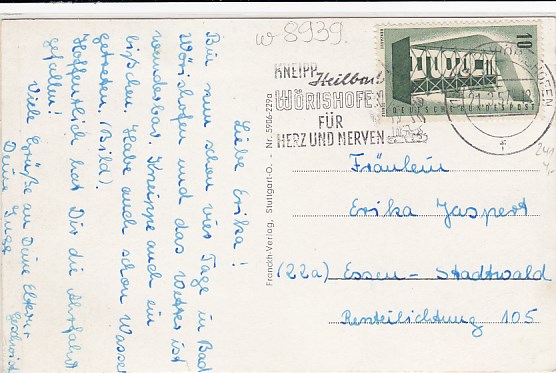 Liebe Erika!
Bin nun schon vier Tage in Bad
Wörishofen und das Wetter ist
wunderbar. Kneippe auch ein
bißchen. Habe auch schon Wasser
getreten (Bild).
Hoffentlich hat Dir die
gefallen!
Viele Grüße an Deine Eltern
Deine
Franckh-Verlag, Stuttgart-O. - Nr. 5986-229a
w 8939.
KNEIPP Heilbad
WÖRISHOFEN
FÜR
HERZ UND NERVEN
10
EUROPA
DEUTSCHE BUNDESPOST
f
Fräulein
Erika Jaspert
(22a) Essen - Stadtwald
105